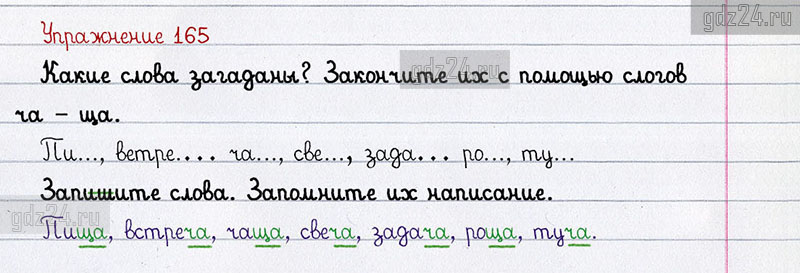 gdz24.ru
Упражнение 165
Какие слова загаданы? Закончите их с помощью слогов
gdz24.ru
ча – ща.
Пи..., ветре.... ча..., све..., зада... ро..., ту...
Запишите слова. Запомните их написание.
gdz24.ru
Пища, встреча, чаща, свеча, задача, роща, туча.